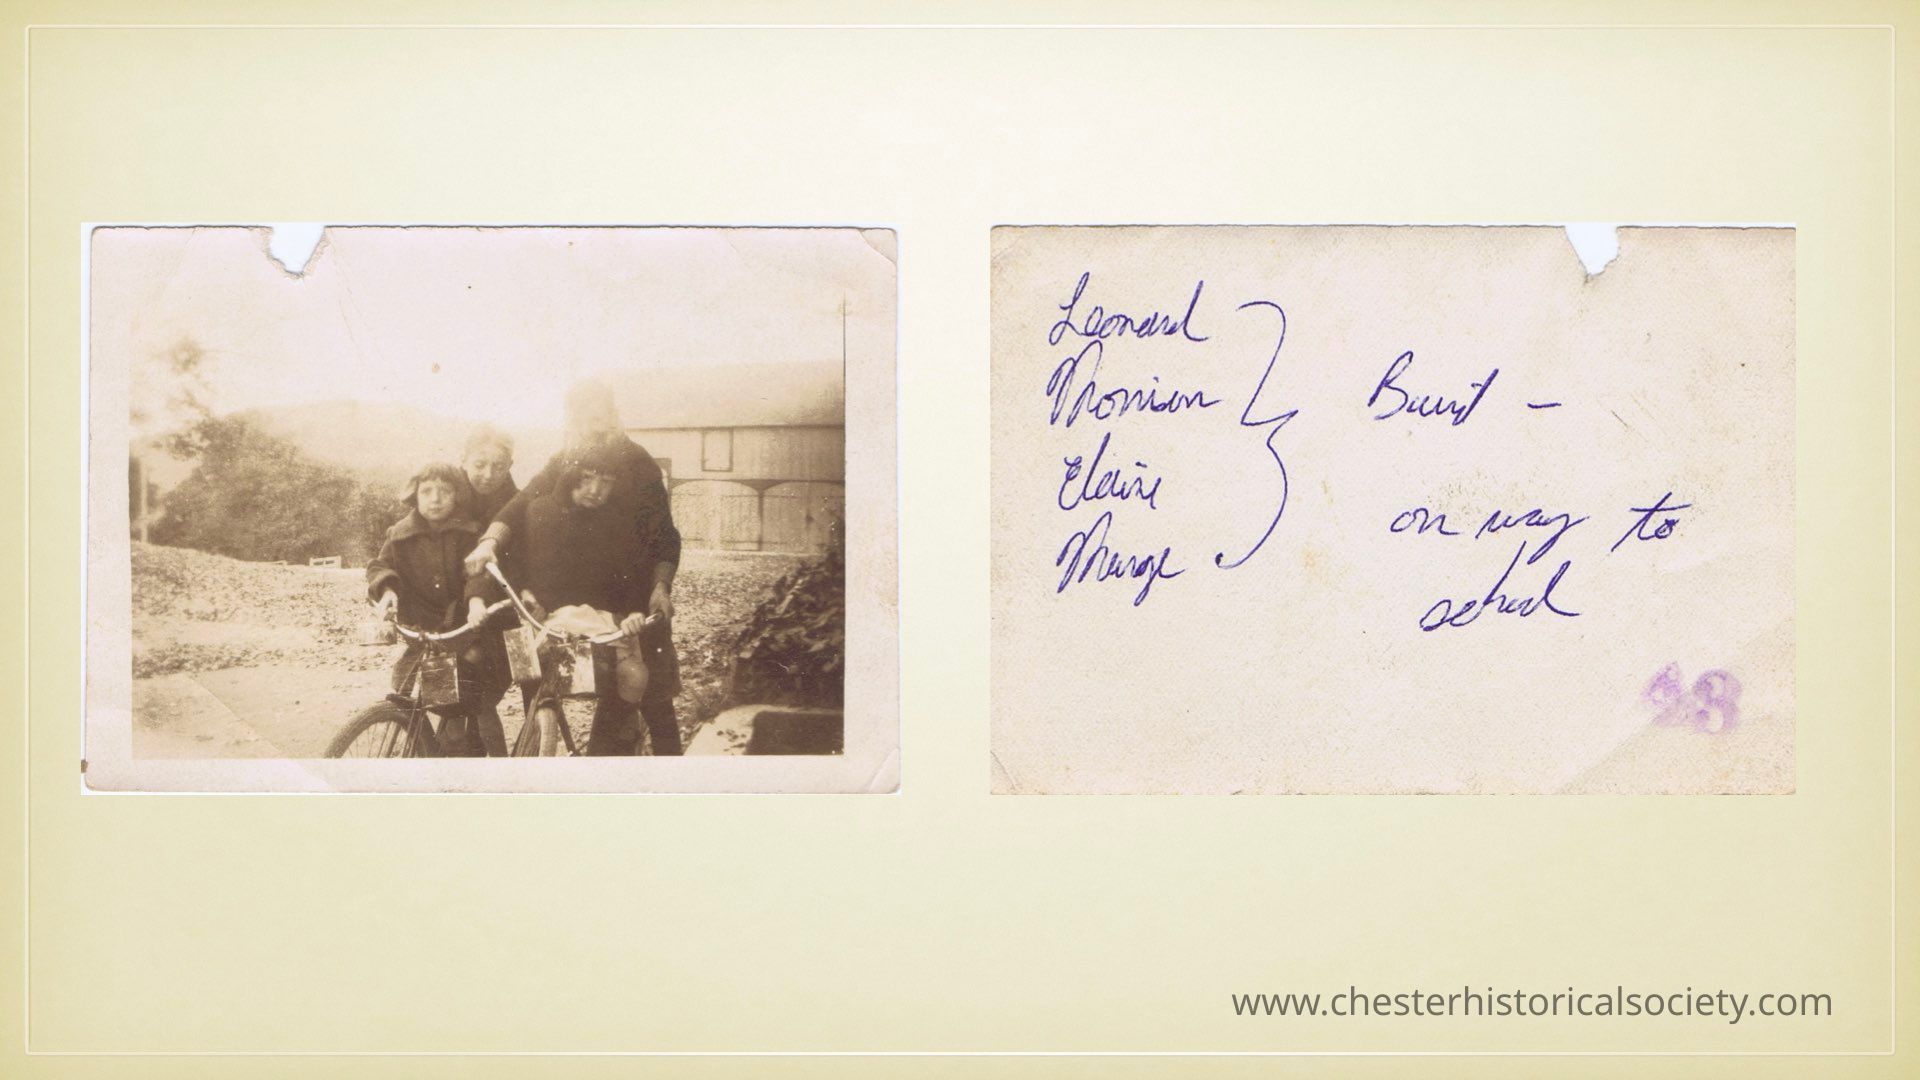 Leonard
Morrison
Elaine
Marge
on way to
school
www.chesterhistoricalsociety.com